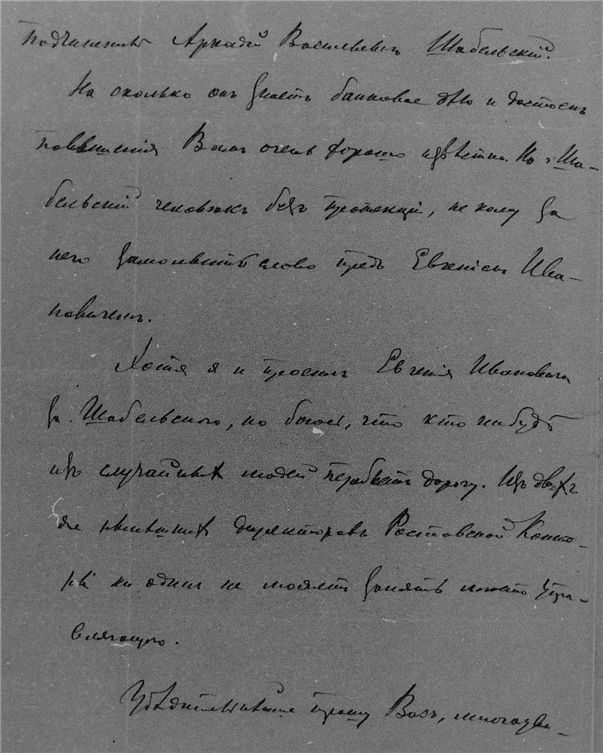 подчиненный Аркадій Васильевичъ Шабельскій.
На сколько онъ знаетъ банковое дѣло и достоенъ
повышенія Вамъ очень хорошо извѣстно. Но Ша-
бельскій человѣкъ безъ протекціи, не кому за
него замолвить слово предъ Евгеніемъ Ива-
новичемъ.
Хотя я и просилъ Евгенія Ивановича
за Шабельскаго, но боюсь, что кто нибудь
изъ случайныхъ людей перебьетъ дорогу. Изъ двухъ
же нынѣшнихъ директоровъ Ростовской Конто-
ры ни одинъ не можетъ занять мѣсто Упра-
вляющаго.
Убѣдительнѣйше прошу Васъ, многоува-